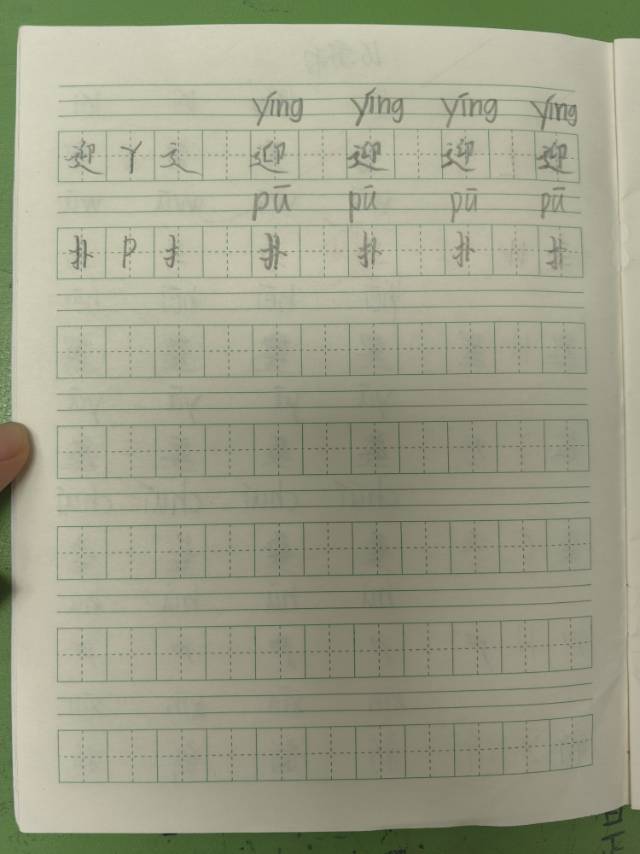 yíng yíng yíng yíng
迎 Y 辶 迎 迎 迎 迎
pū pū pū pū
扑 P 扌 扑 扑 扑 扑